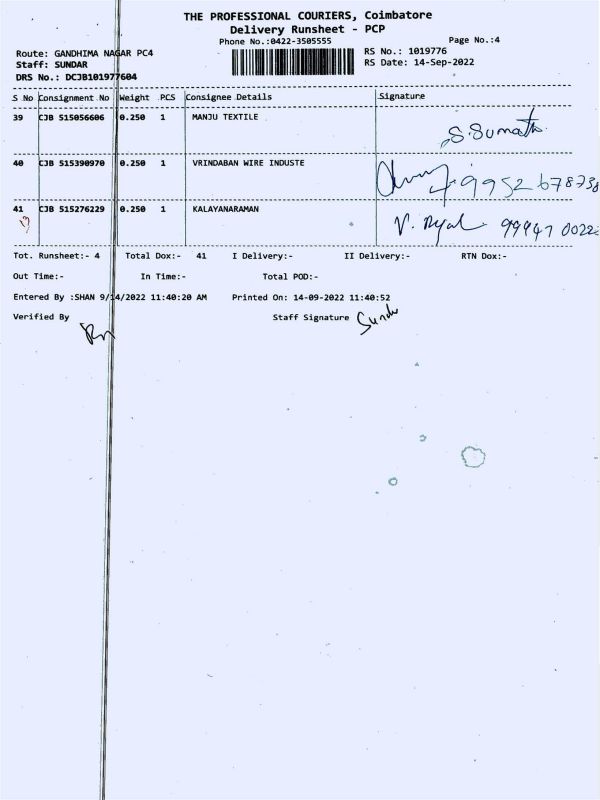 THE PROFESSIONAL COURIERS, Coimbatore
Delivery Runsheet - PCP
Phone No.:0422-3505555 Page No.:4
Route: GANDHIMA NAGAR PC4 RS No.: 1019776
Staff: SUNDAR RS Date: 14-Sep-2022
DRS No.: DCJB101977604
S No Consignment No Weight PCS Consignee Details Signature
39 CJB 515056606 0.250 1 MANJU TEXTILE S.Sumath
40 CJB 515390970 0.250 1 VRINDABAN WIRE INDUSTE 9952678738
41 CJB 515276229 0.250 1 KALAYANARAMAN
Tot. Runsheet:- 4 Total Dox:- 41 I Delivery:- II Delivery:- RTN Dox:-
Out Time:- In Time:- Total POD:-
Entered By :SHAN 9/14/2022 11:40:20 AM Printed On: 14-09-2022 11:40:52
Verified By Staff Signature